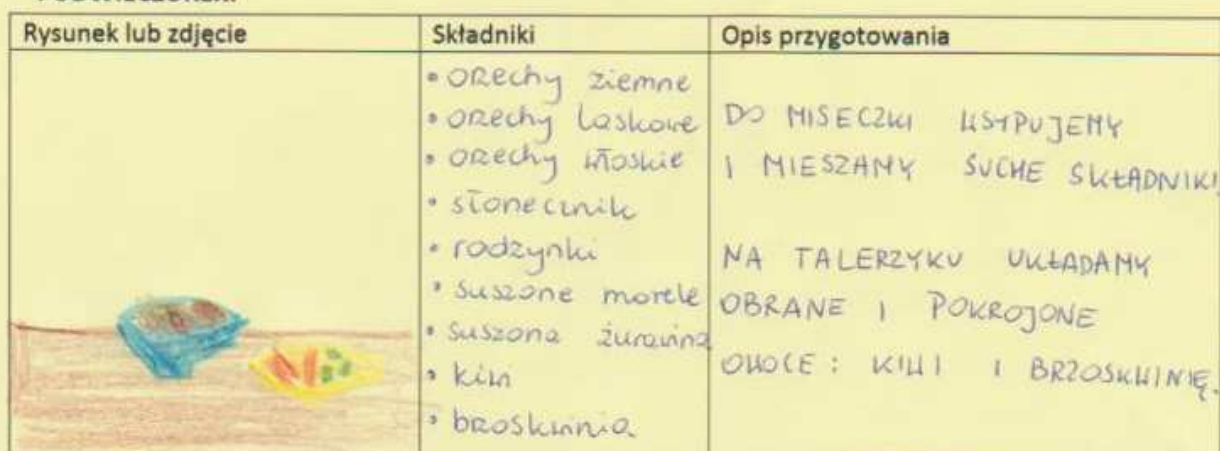 Rysunek lub zdjęcie
Składniki
Opis przygotowania
• orzechy ziemne
• orzechy laskowe
• orzechy włoskie
• słonecznik
• rodzynki
• suszone morele
• suszona żurawina
• kiwi
• broskwinia
DO MISECZKI WSYPUJEMY
I MIESZAMY SUCHE SKŁADNIKI.
NA TALERZYKU UKŁADAMY
OBRANE I POKROJONE
OWOCE: KIWI I BRZOSKWINIĘ.